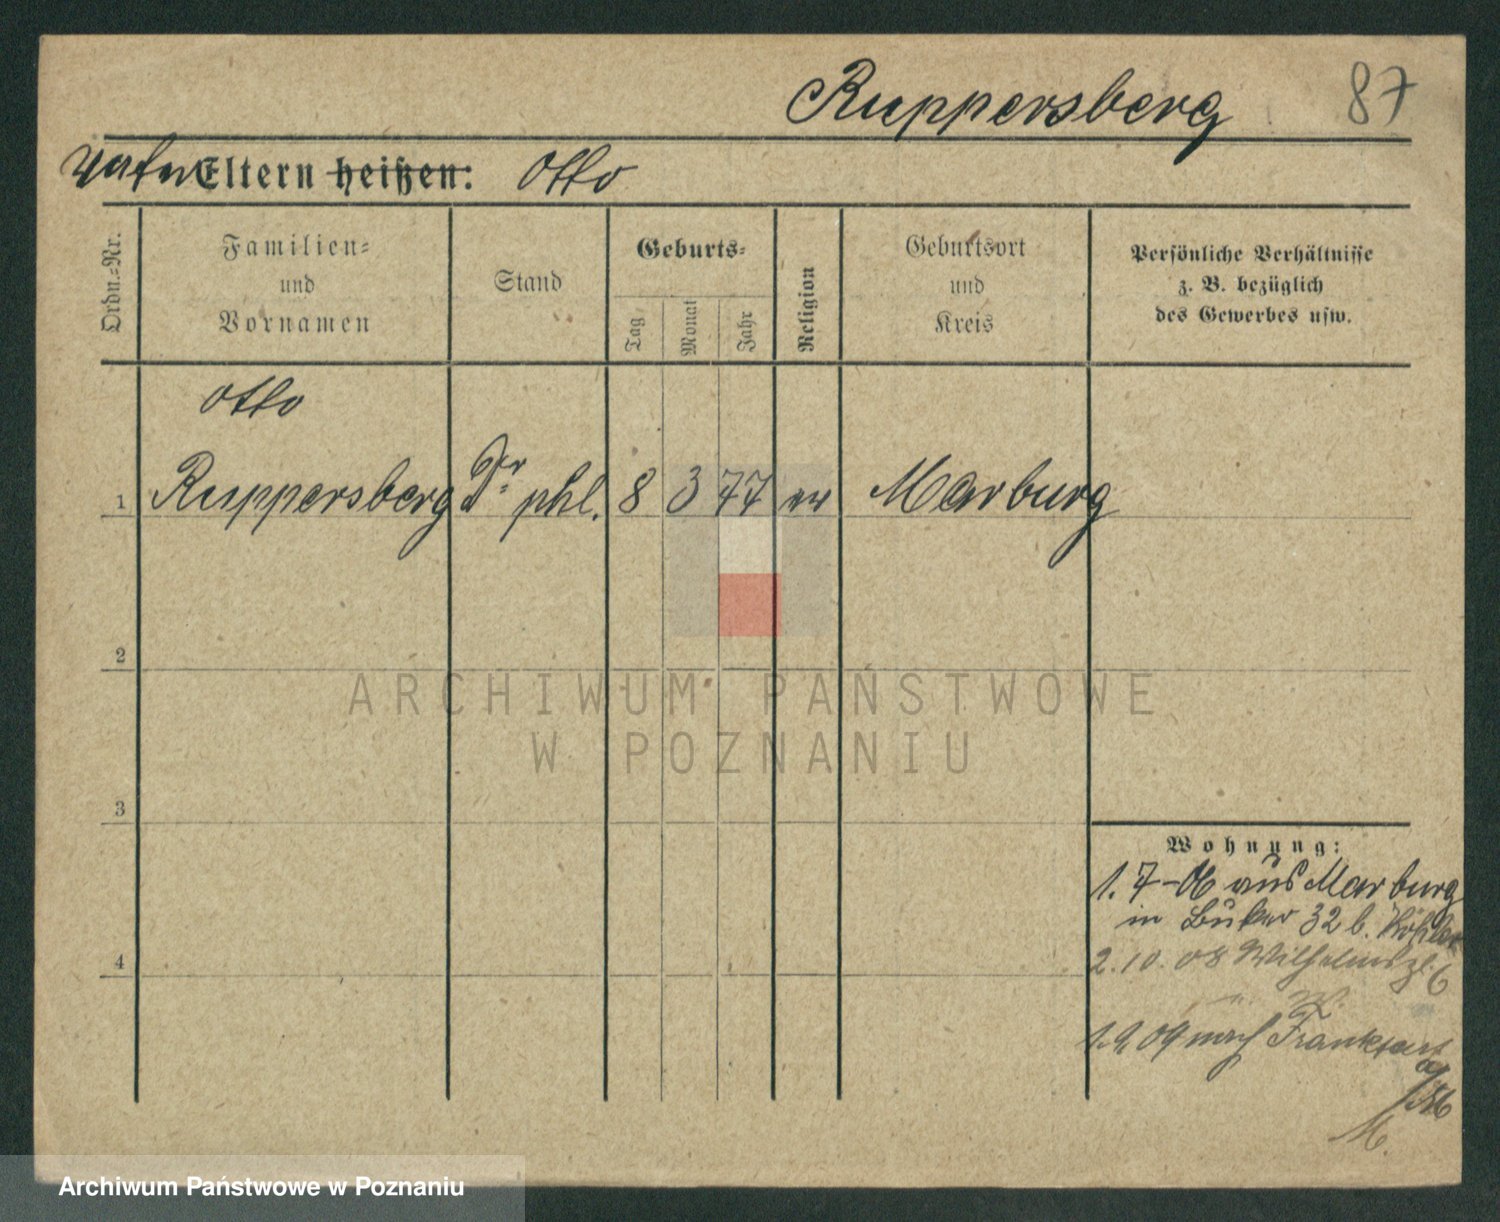 Ruppersberg 87
Vater Eltern heißen: Otto
Ordn.-Nr.
Familien-
und
Vornamen
Stand
Geburts-
Tag
Monat
Jahr
Religion
Geburtsort
und
Kreis
Persönliche Verhältnisse
z. B. bezüglich
des Gewerbes usw.
Otto
1 Ruppersberg Dr. phl. 8 3 77 ev Marburg
2
ARCHIWUM PAŃSTWOWE
W POZNANIU
3
Wohnung:
1. 7-06 aus Marburg
in Buker 32 b. Köhler
4
2.10.08 Wilhelmspl. 6
1.9.09 nach Frankfurt
a/M
Archiwum Państwowe w Poznaniu